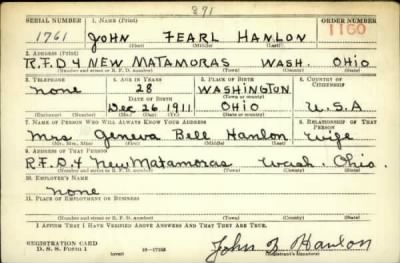 891
SERIAL NUMBER 1. NAME (Print) ORDER NUMBER
1761 JOHN FEARL HANLON 1160
(First) (Middle) (Last)
2. ADDRESS (Print)
R.F.D 4 NEW MATAMORAS WASH. OHIO
(Number and street or R. F. D. number) (Town) (County) (State)
3. TELEPHONE 4. AGE IN YEARS 5. PLACE OF BIRTH 6. COUNTRY OF CITIZENSHIP
none 28 WASHINGTON
DATE OF BIRTH (Town or county)
Dec 26 1911 OHIO U.S.A
(Exchange) (Number) (Mo.) (Day) (Yr.) (State or country)
7. NAME OF PERSON WHO WILL ALWAYS KNOW YOUR ADDRESS 8. RELATIONSHIP OF THAT PERSON
Mrs Geneva Bell Hanlon wife
(Mr., Mrs., Miss) (First) (Middle) (Last)
9. ADDRESS OF THAT PERSON
R.F.D.4 New Matamoras Wash. Ohio.
(Number and street or R. F. D. number) (Town) (County) (State)
10. EMPLOYER'S NAME
none
11. PLACE OF EMPLOYMENT OR BUSINESS
(Number and street or R. F. D. number) (Town) (County) (State)
I AFFIRM THAT I HAVE VERIFIED ABOVE ANSWERS AND THAT THEY ARE TRUE.
REGISTRATION CARD
D. S. S. Form 1 (over) John F Hanlon
(Registrant's signature)